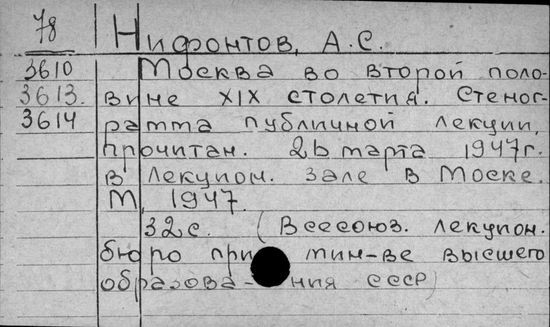 78 Нифонтов, А.С.
3610 Москва во второй поло-
3613. вине XIX столетия. Стеног-
3614 рамма публичной лекции,
прочитан. 26 марта 1947г.
в лекцион. зале в Моске.
М, 1947.
32с. (Всесоюз. лекцион.
бюро при мин-ве высшего
образова-ния СССР)